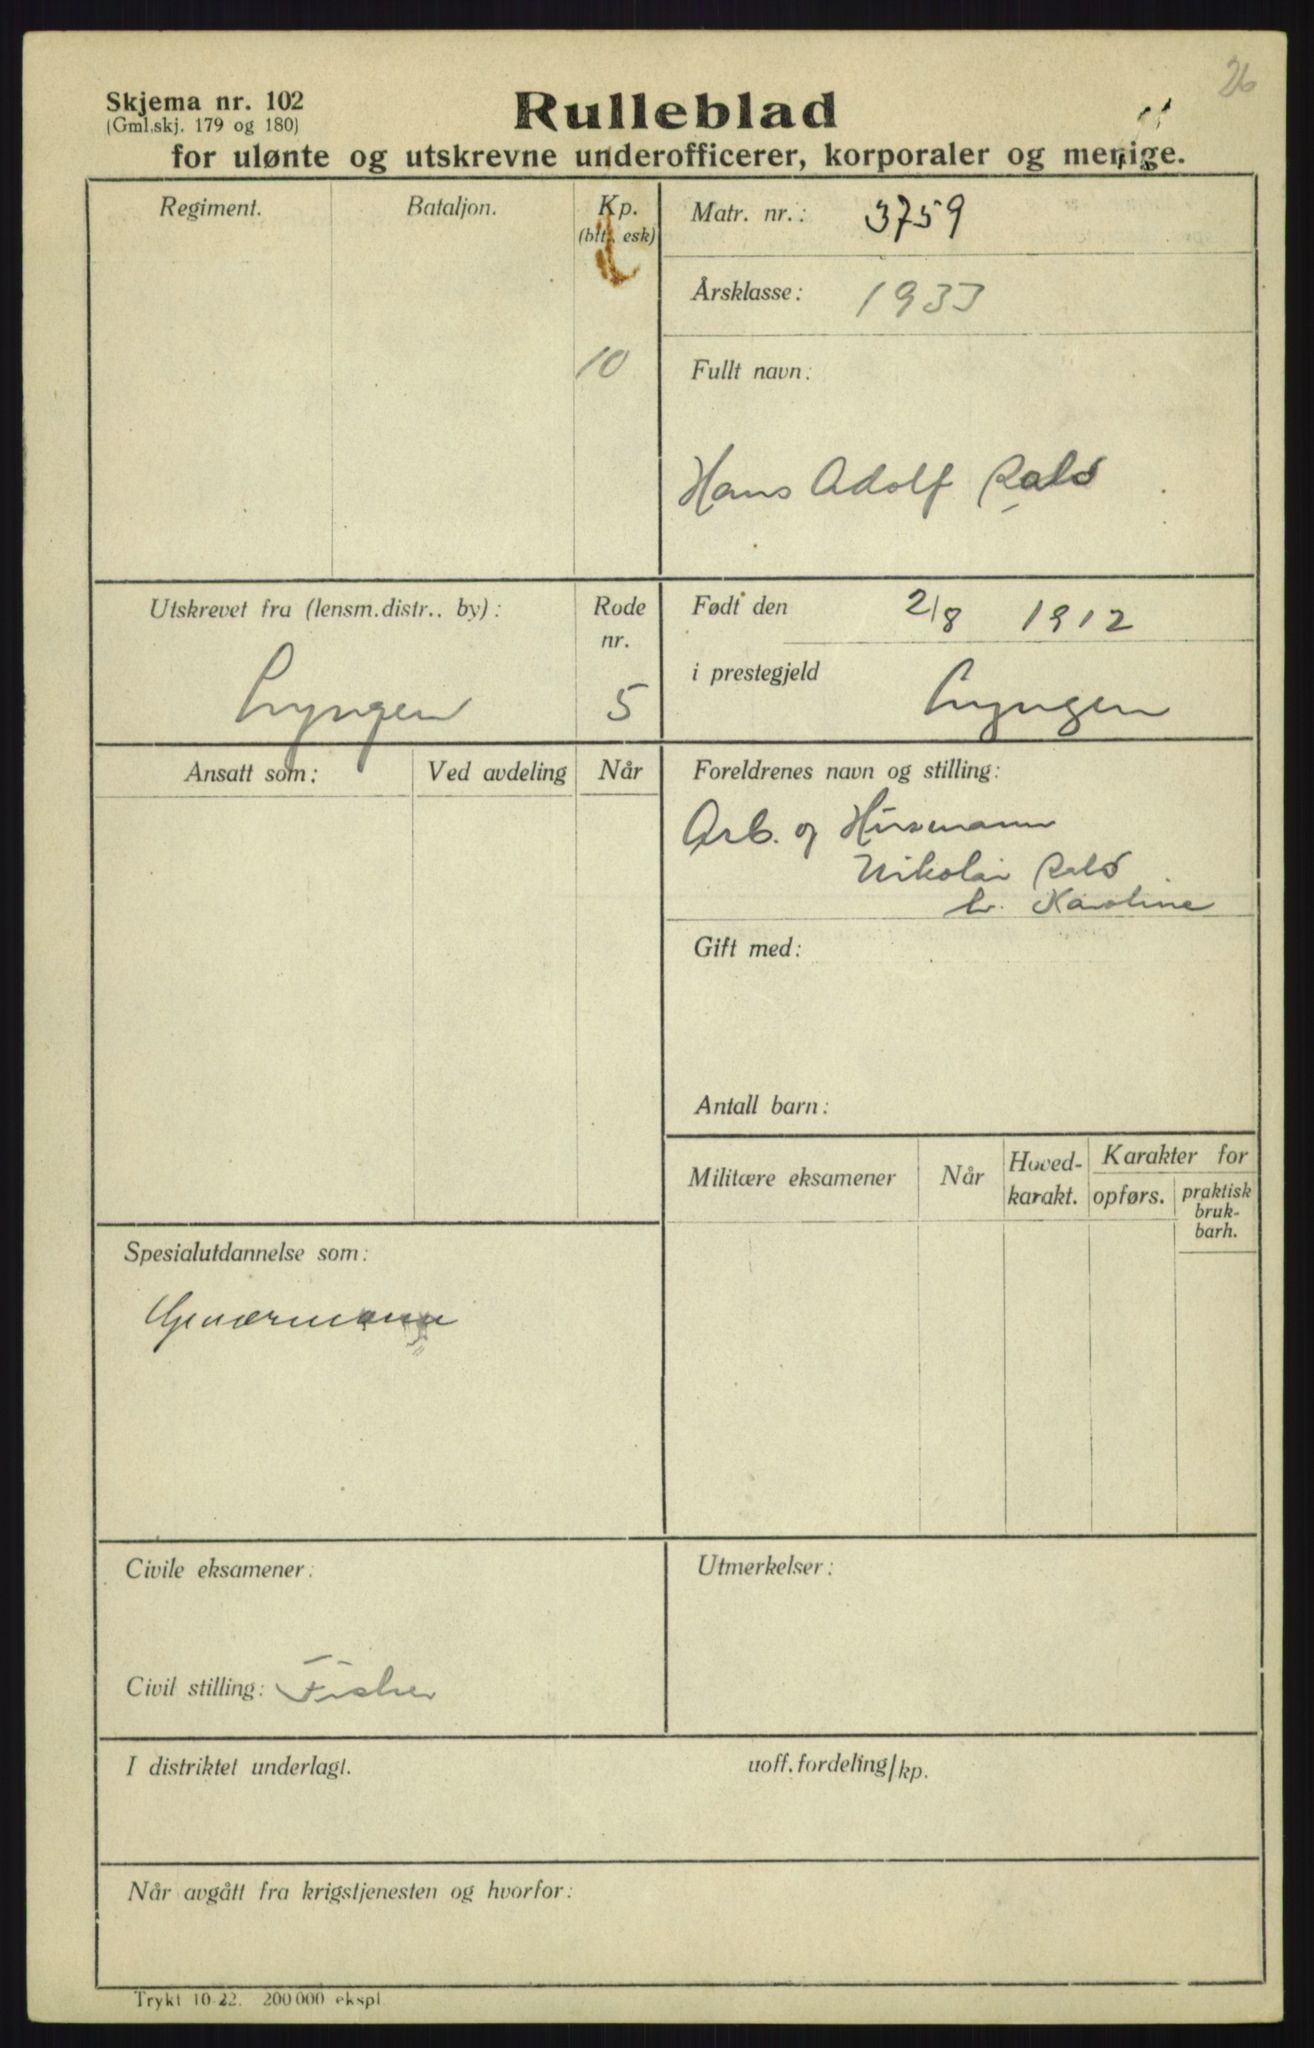 26
Skjema nr. 102
(Gml.skj. 179 og 180)
Rulleblad
for ulønte og utskrevne underofficerer, korporaler og menige.
Regiment.
Bataljon.
Kp.
(btt. esk)
10
Matr. nr.: 3759
Årsklasse: 1933
Fullt navn:
Hans Adolf
Utskrevet fra (lensm.distr.. by):
Lyngen
Rode
nr.
5
Født den 2/8 1912
i prestegjeld Lyngen
Ansatt som:
Ved avdeling
Når
Foreldrenes navn og stilling:
Arb. og
Nikolai
Karoline
Gift med:
Antall barn:
Militære eksamener
Når
Hoved-
karakt.
Karakter for
opførs.
praktisk
bruk-
barh.
Spesialutdannelse som:
Geværmann
Civile eksamener:
Civil stilling: Fisker
Utmerkelser:
I distriktet underlagt.
uoff. fordeling/kp.
Når avgått fra krigstjenesten og hvorfor:
Trykt 10-22. 200 000 ekspl